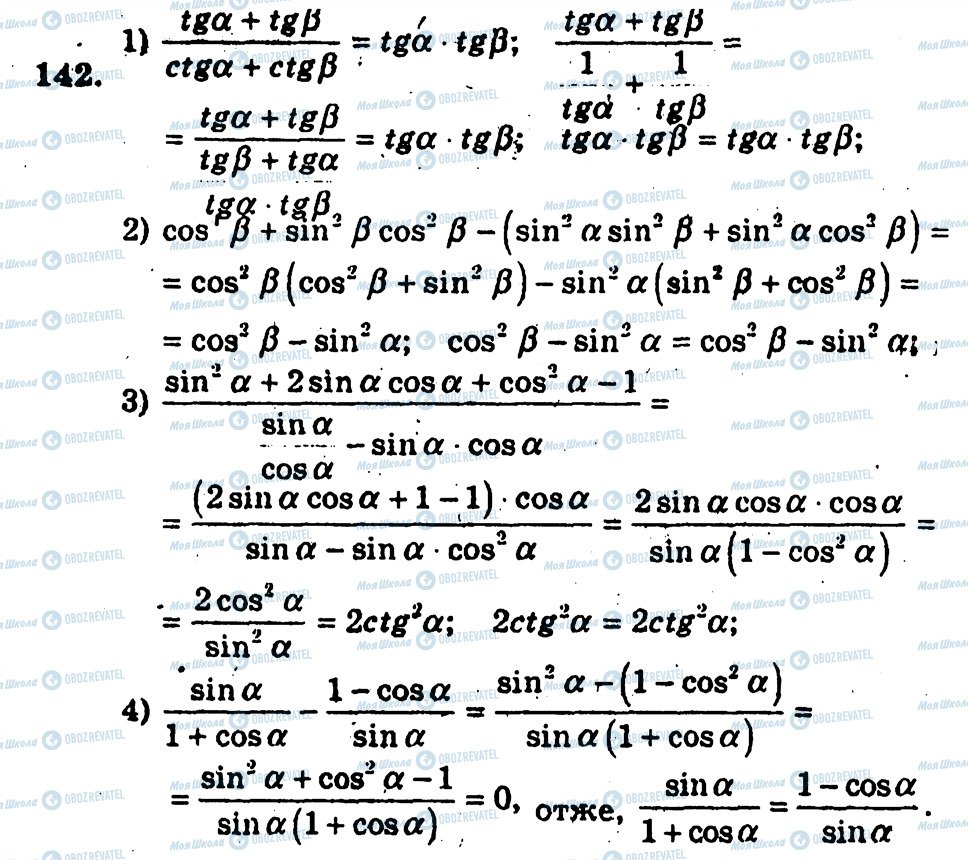 142. 1) (tgα + tgβ)/(ctgα + ctgβ) = tgα · tgβ; (tgα + tgβ)/(1/tgα + 1/tgβ) =
= (tgα + tgβ)/((tgβ + tgα)/(tgα · tgβ)) = tgα · tgβ; tgα · tgβ = tgα · tgβ;
2) cos⁴ β + sin² β cos² β − (sin² α sin² β + sin² α cos² β) =
= cos² β(cos² β + sin² β) − sin² α(sin² β + cos² β) =
= cos² β − sin² α; cos² β − sin² α = cos² β − sin² α;
3) (sin² α + 2 sin α cos α + cos² α − 1)/(sin α/cos α − sin α · cos α) =
= ((2 sin α cos α + 1 − 1) · cos α)/(sin α − sin α · cos² α) = (2 sin α cos α · cos α)/(sin α(1 − cos² α)) =
= 2 cos² α/sin² α = 2ctg²α; 2ctg²α = 2ctg²α;
4) sin α/(1 + cos α) − (1 − cos α)/sin α = (sin² α − (1 − cos² α))/(sin α(1 + cos α)) =
= (sin² α + cos² α − 1)/(sin α(1 + cos α)) = 0, отже, sin α/(1 + cos α) = (1 − cos α)/sin α.
МояШкола OBOZREVATEL